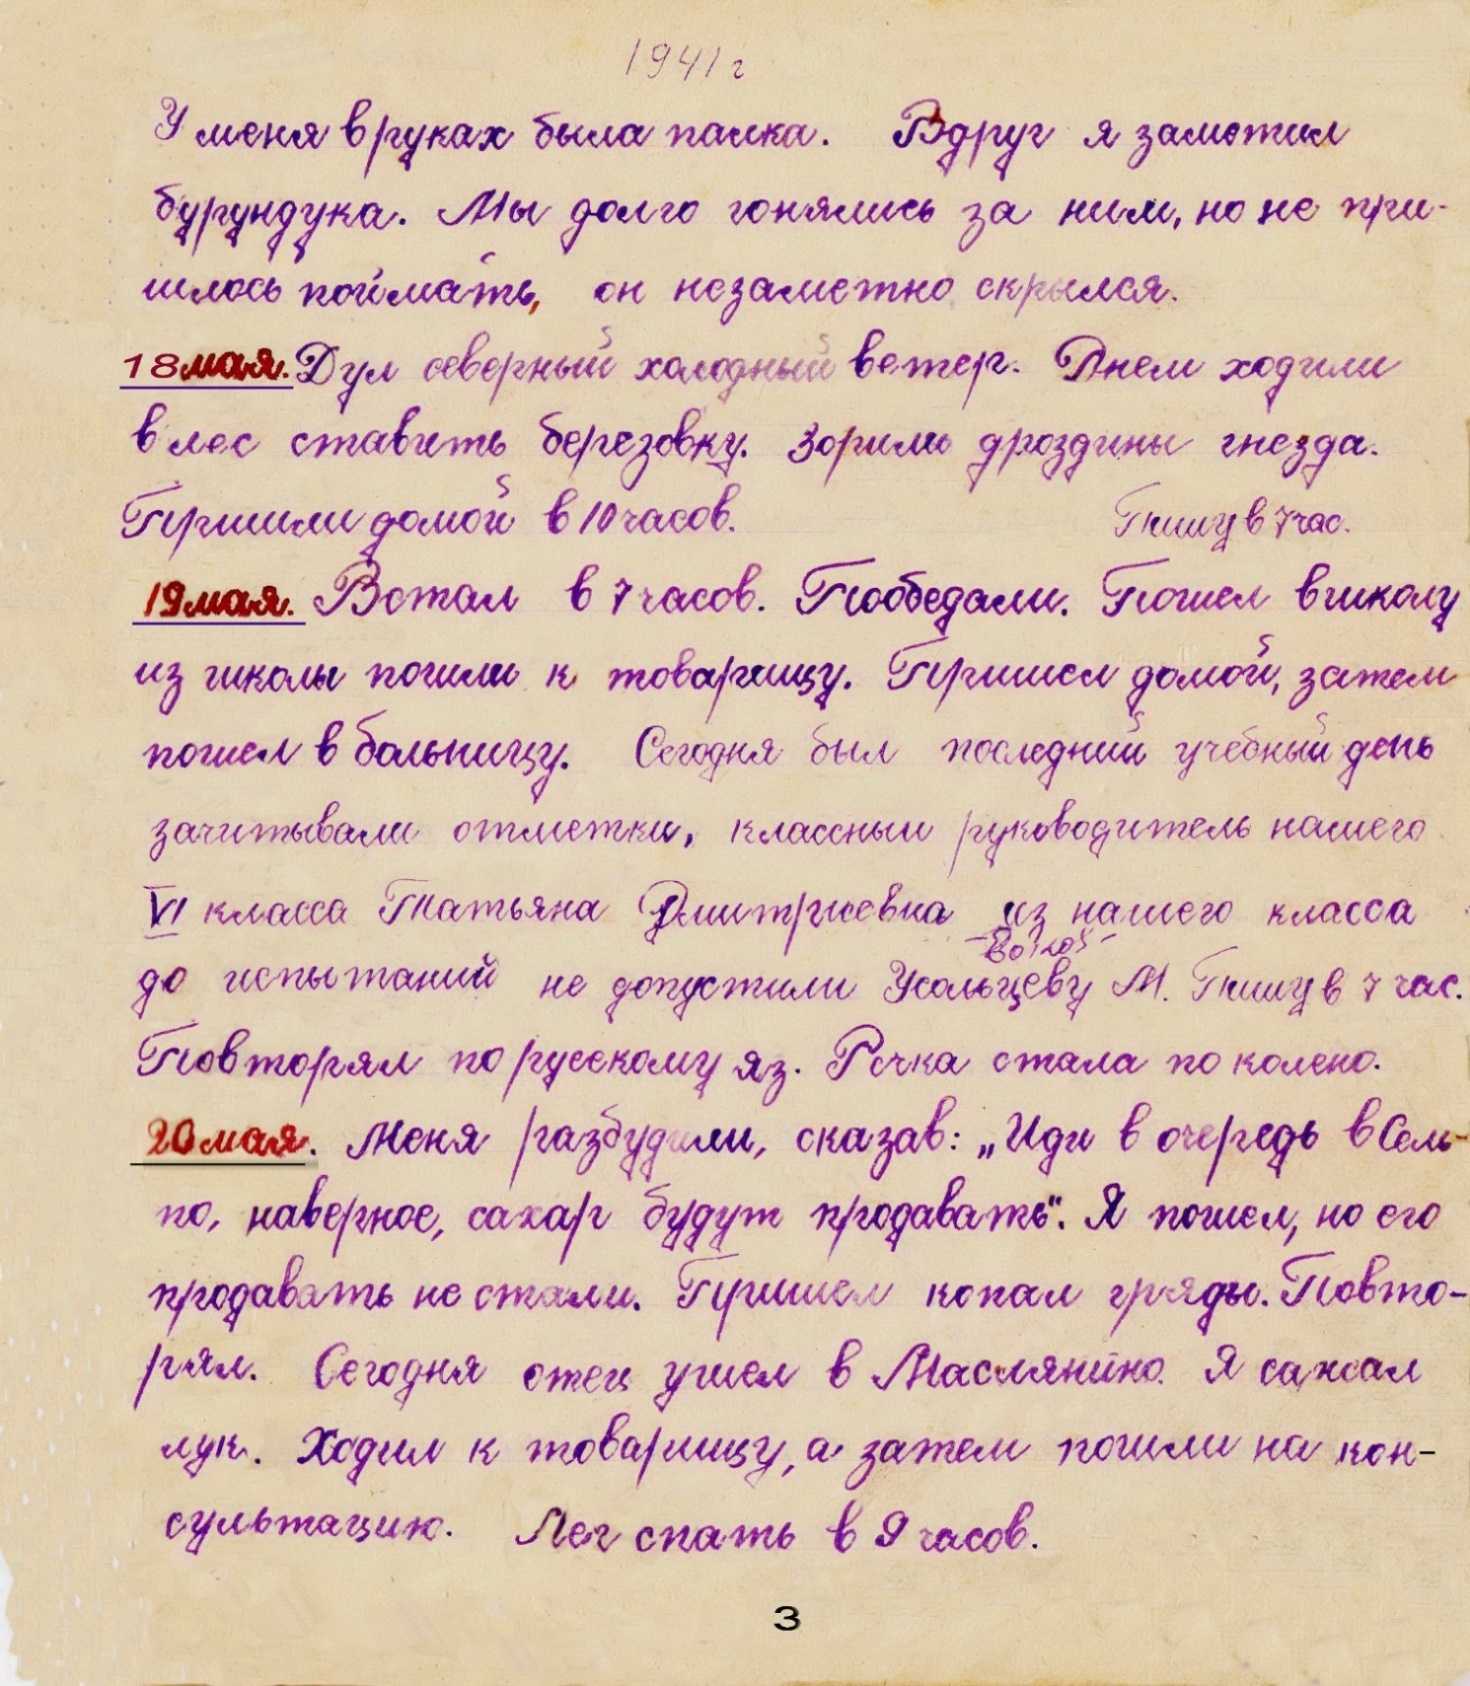 1941 г
У меня в руках была палка. Вдруг я заметил
бурундука. Мы долго гонялись за ним, но не при-
шлось поймать, он незаметно скрылся.
18 мая. Дул северный холодный ветер. Днем ходили
в лес ставить березовку. Зорили дроздины гнезда.
Пришли домой в 10 часов. Пишу в 7 час.
19 мая. Встал в 7 часов. Пообедали. Пошел в школу
из школы пошли к товарищу. Пришел домой, затем
пошел в больницу. Сегодня был последний учебный день
зачитывали отметки, классныи руководитель нашего
VI класса Татьяна Дмитриевна из нашего класса
до испытаний не допустили Усольцеву М. Пишу в 7 час.
Повторял по русскому яз. Речка стала по колено.
20 мая. Меня разбудили, сказав: „Иди в очередь в Сель-
по, наверное, сахар будут продавать". Я пошел, но его
продавать не стали. Пришел копал гряды. Повто-
рял. Сегодня отец ушел в Маслянино. Я сажал
лук. Ходил к товарищу, а затем пошли на кон-
сультацию. Лег спать в 9 часов.
3